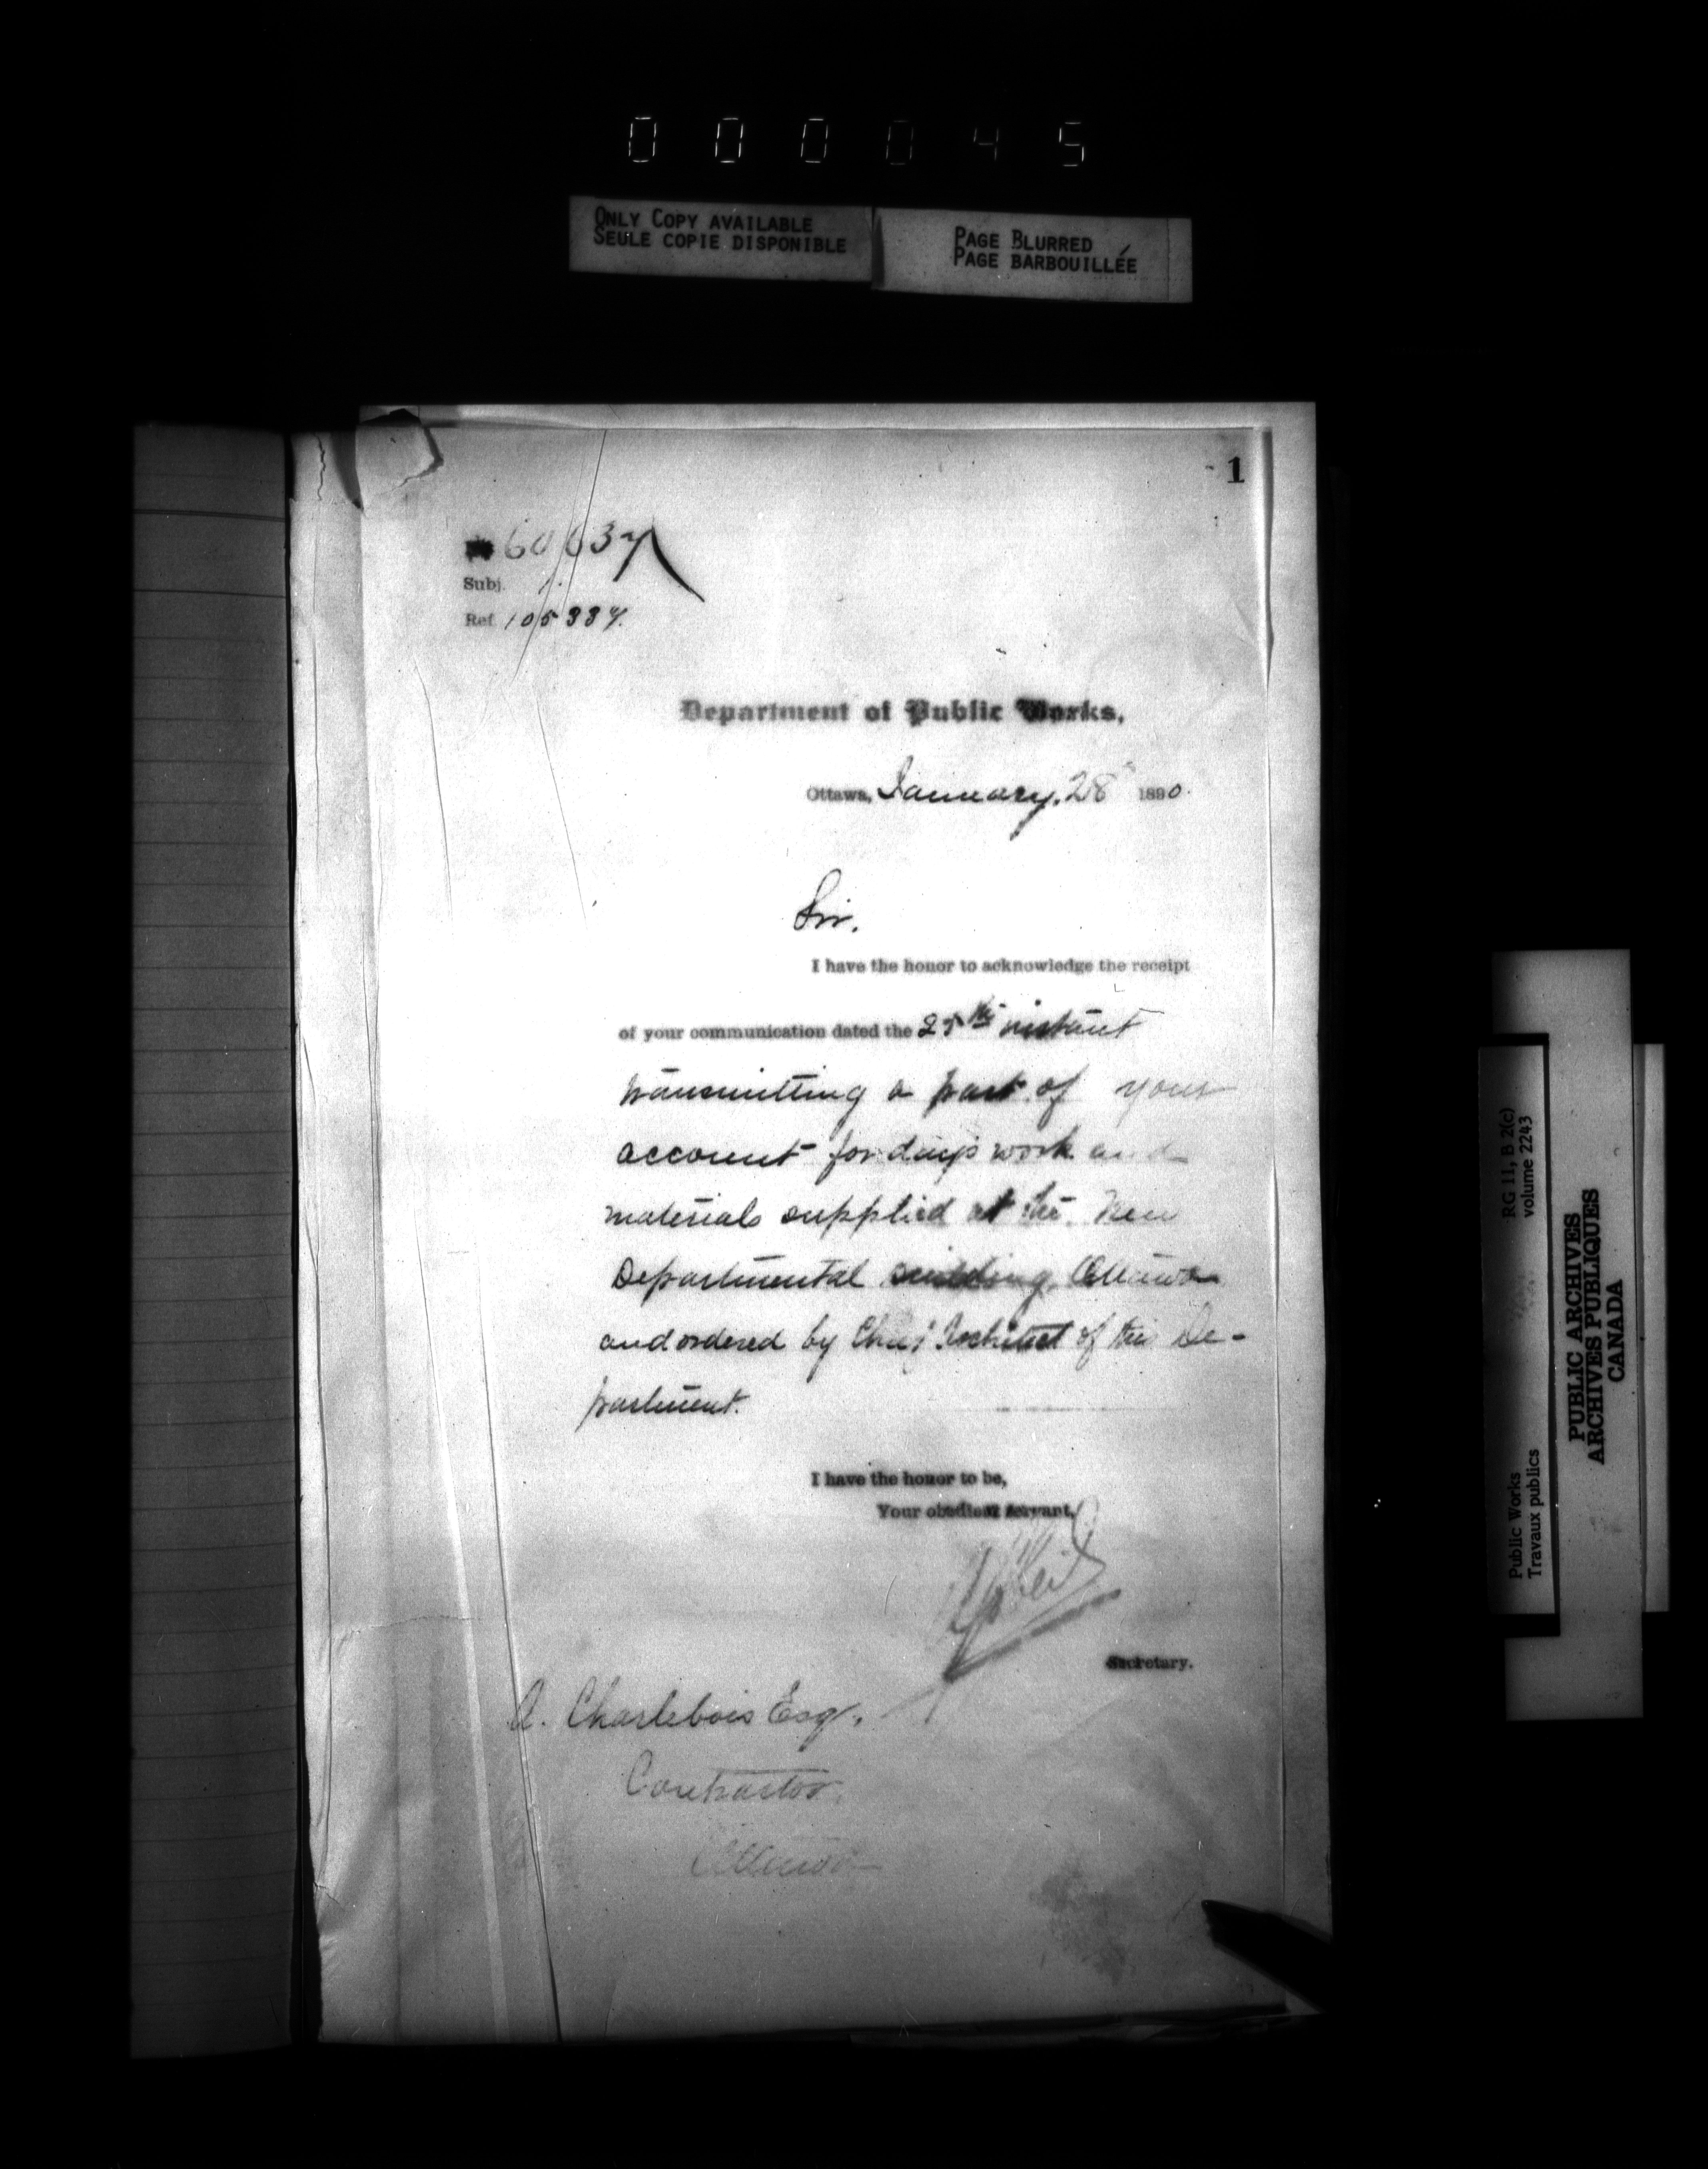 000045
ONLY COPY AVAILABLE
SEULE COPIE DISPONIBLE
PAGE BLURRED
PAGE BARBOUILLÉE
1
Subj. 1.
Ref.
Department of Public Works,
Ottawa, January, 28th 1890.
Sir.
I have the honor to acknowledge the receipt
of your communication dated the 25th instant
transmitting a part of your
account for day's work and
materials supplied at the New
Departmental building, Ottawa
and ordered by Chief Architect of this De-
partment.
I have the honor to be,
Your obedient servant,
Secretary.
A. Charlebois Esq.
Contractor.
Ottawa
RG 11, B 2(c)
volume 2243
Public Works
Travaux publics
PUBLIC ARCHIVES
ARCHIVES PUBLIQUES
CANADA